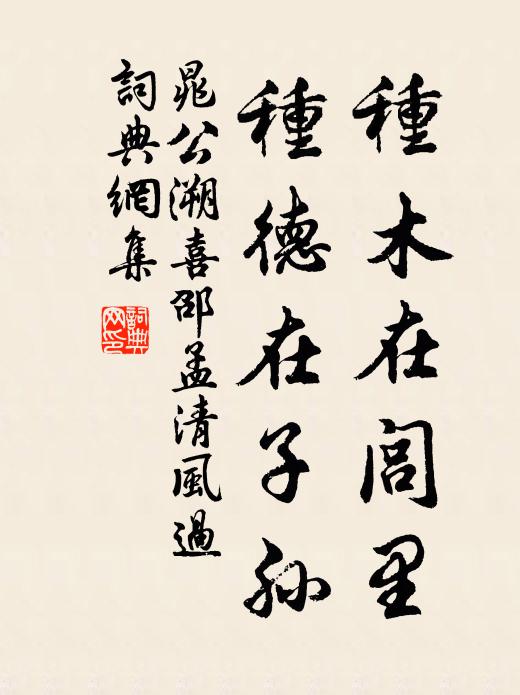 種木在閭里
種德在子孫
晁公溯喜邵孟清風過
詞典網集
詞典网印